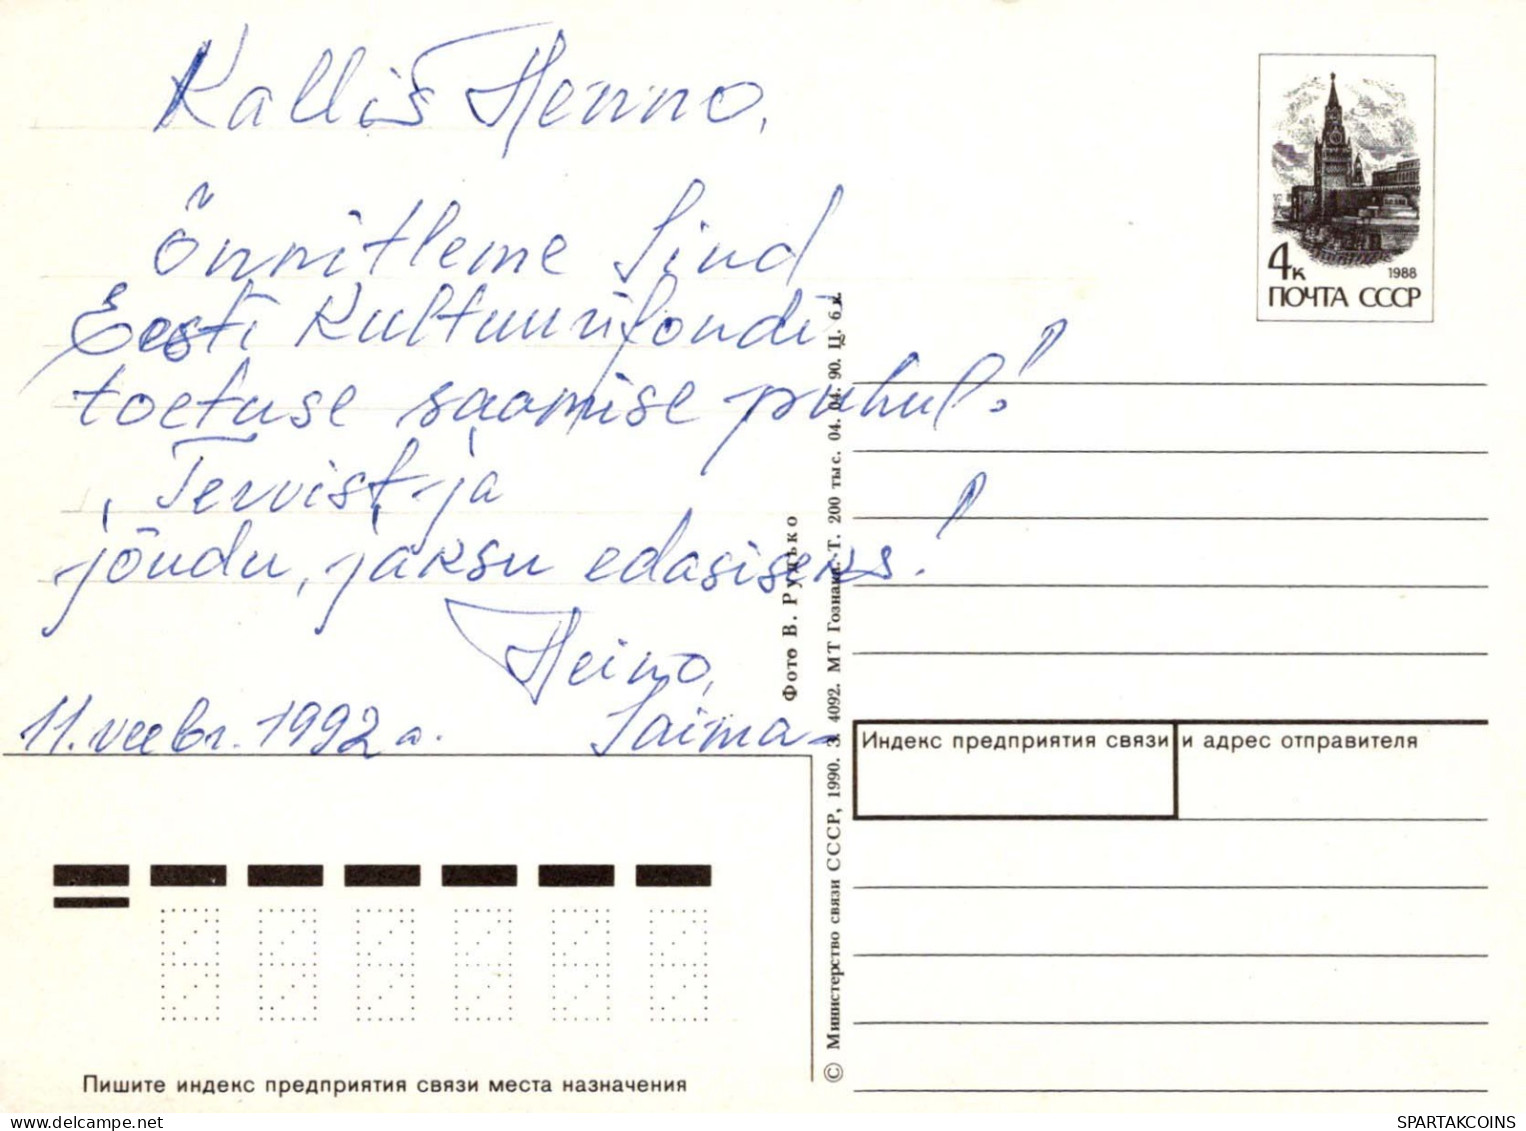 Kallis Henno,
Õnnitleme Sind
Eesti Kultuurifondi
toetuse saamise puhul!
Tervist ja
jõudu, jaksu edasiseks!
Heino,
Saima
11. veebr. 1992 a.
4к 1988
ПОЧТА СССР
Фото В. Рудько
© Министерство связи СССР, 1990. З. 4092. МТ Гознака. Т. 200 тыс. 04. 04. 90. Ц. 6 к.
Индекс предприятия связи и адрес отправителя
Пишите индекс предприятия связи места назначения
SPARTAKCOINS @ delcampe.net